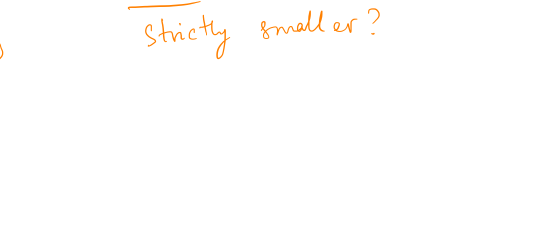 Strictly smaller?